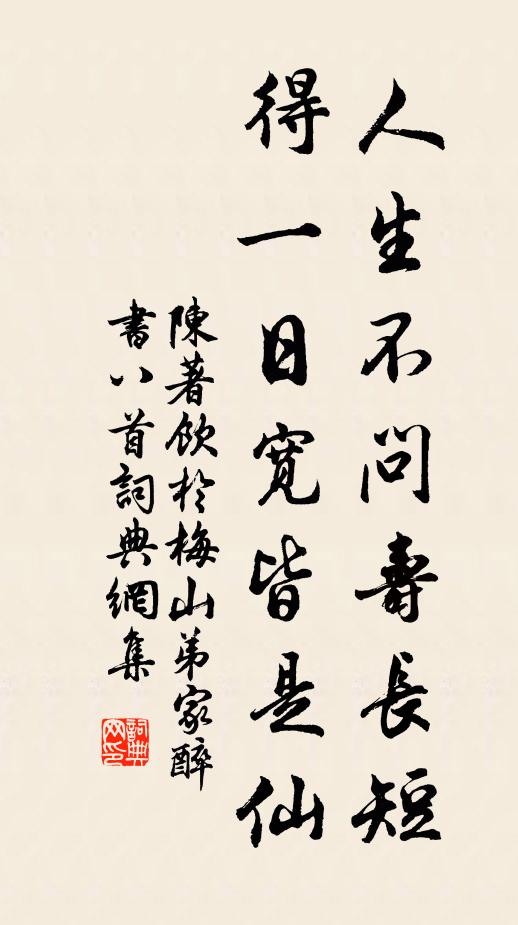 人生不問壽長短
得一日寬皆是仙
陳著飲於梅山弟家醉
書八首詞典網集
詞典
网印